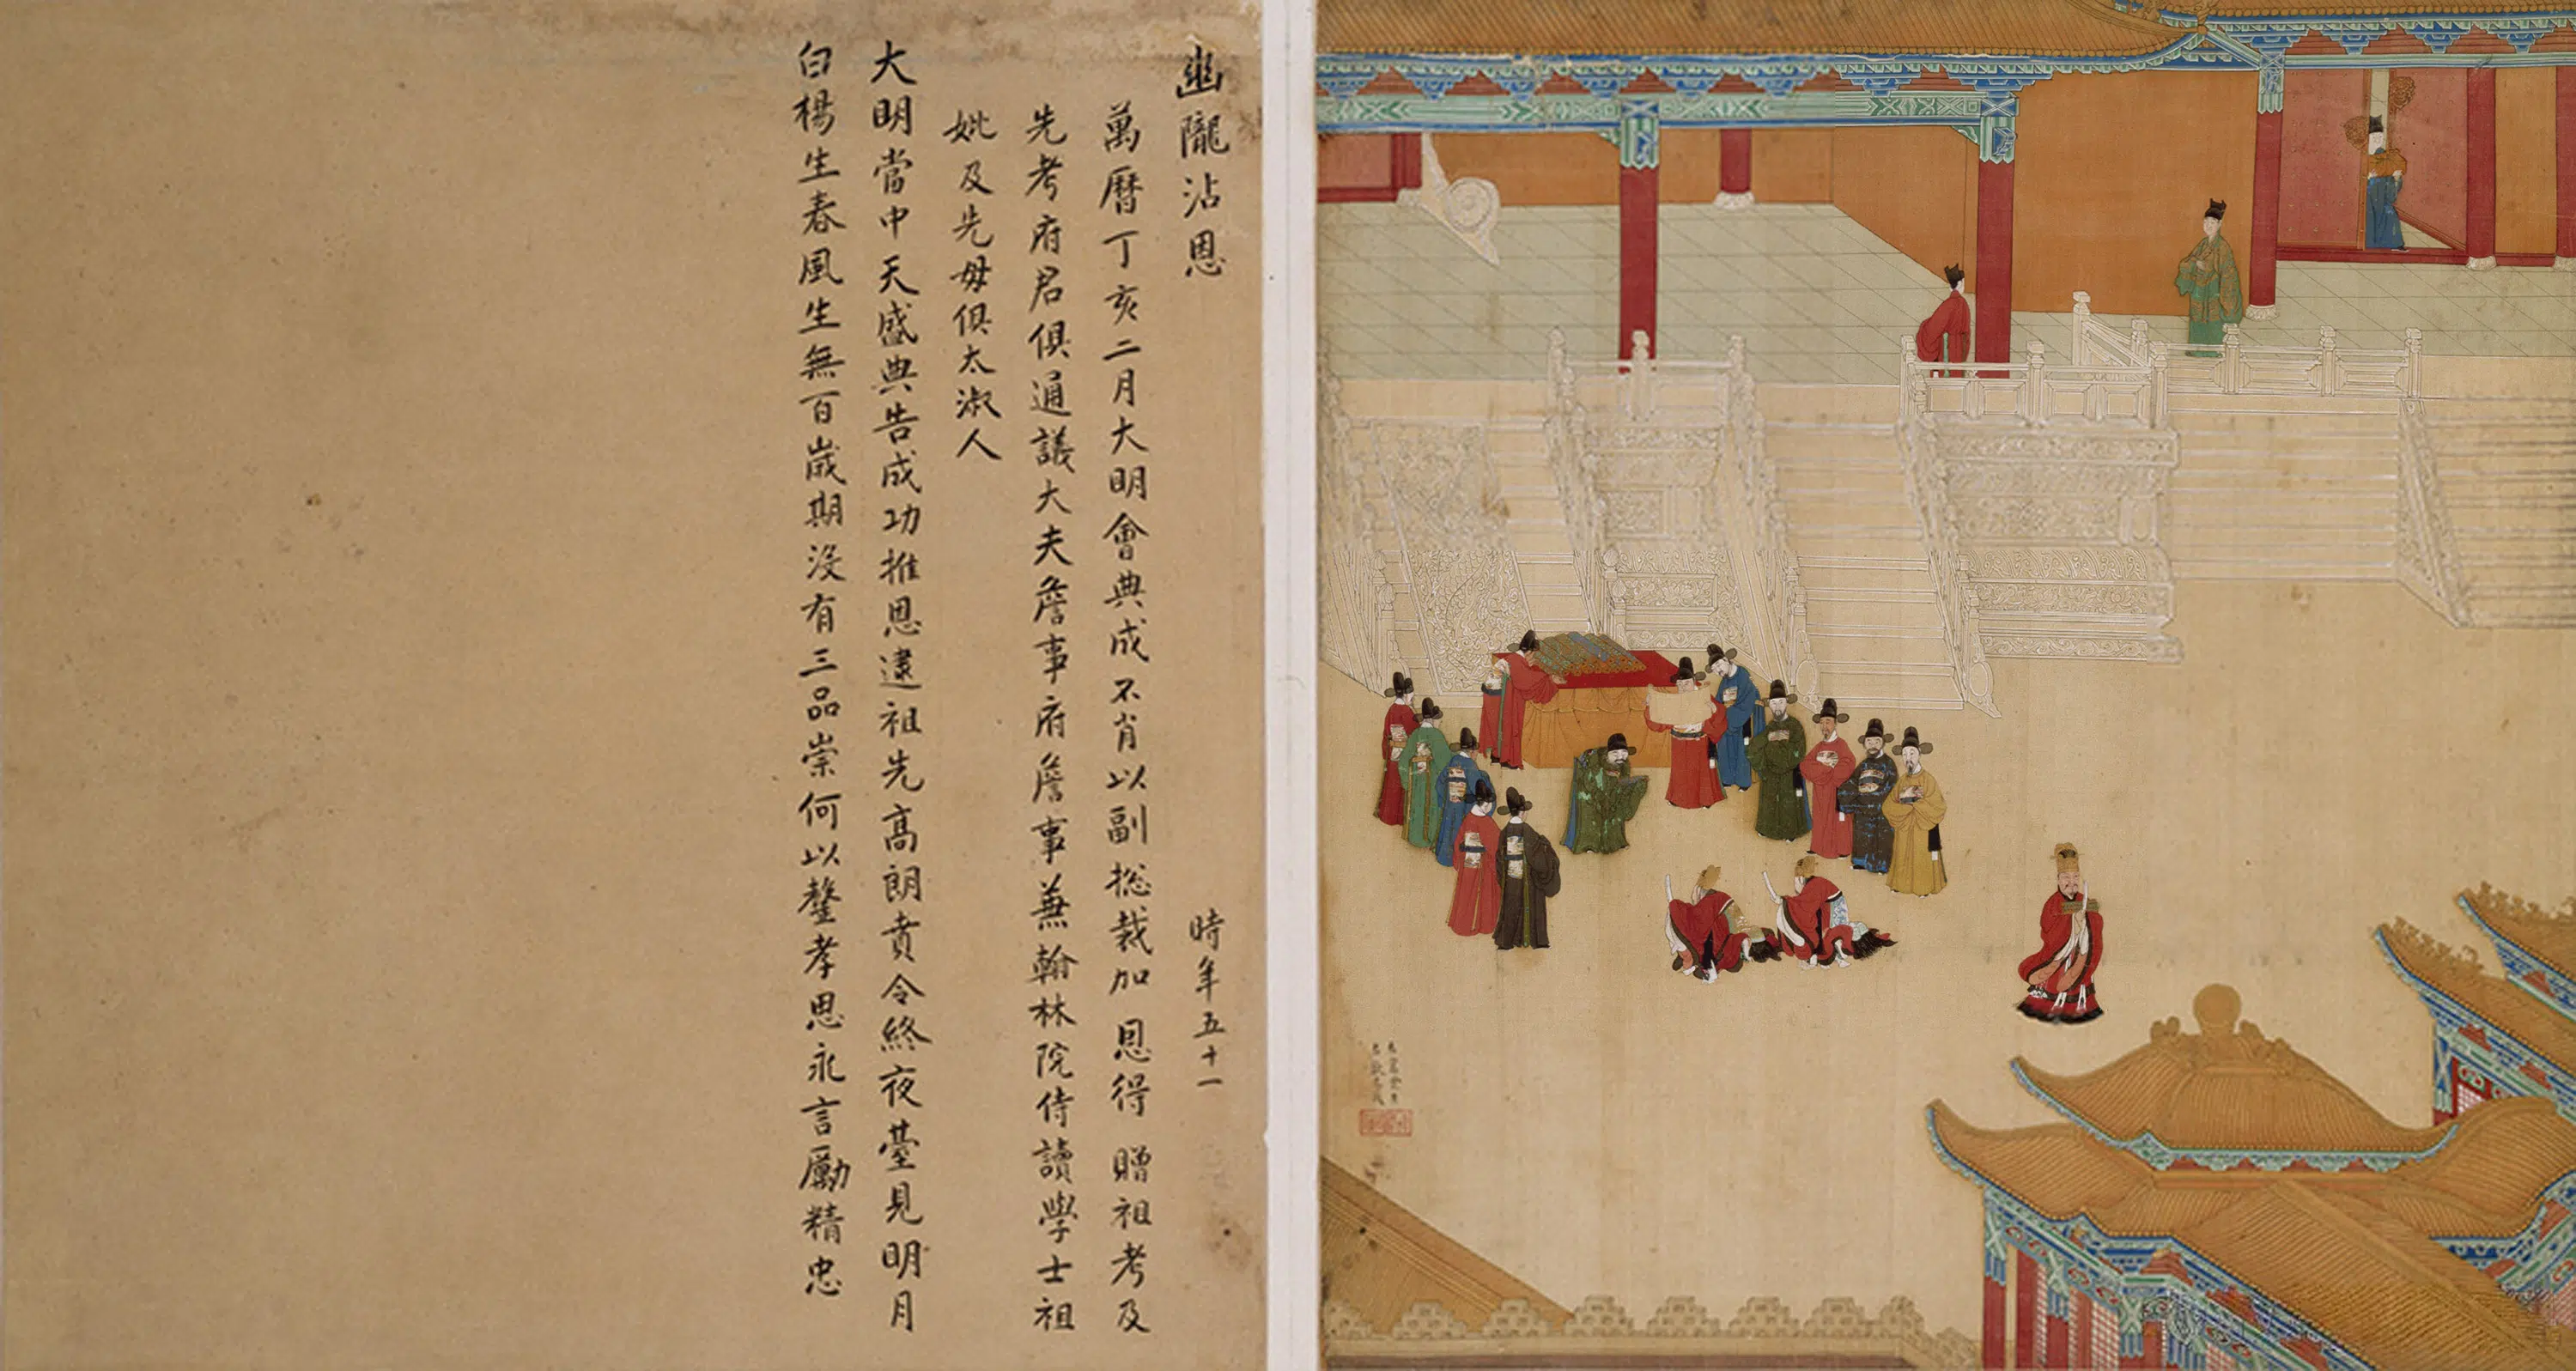 幽隴沾恩
時年五十一
萬曆丁亥二月大明會典成不肖以副總裁加恩得贈祖考及
先考府君俱通議大夫詹事府詹事兼翰林院侍讀學士祖
妣及先母俱太淑人
大明當中天盛典告成功推恩逮祖先高朗賁令終夜臺見明月
白楊生春風生無百歲期沒有三品崇何以鏧孝思永言勵精忠